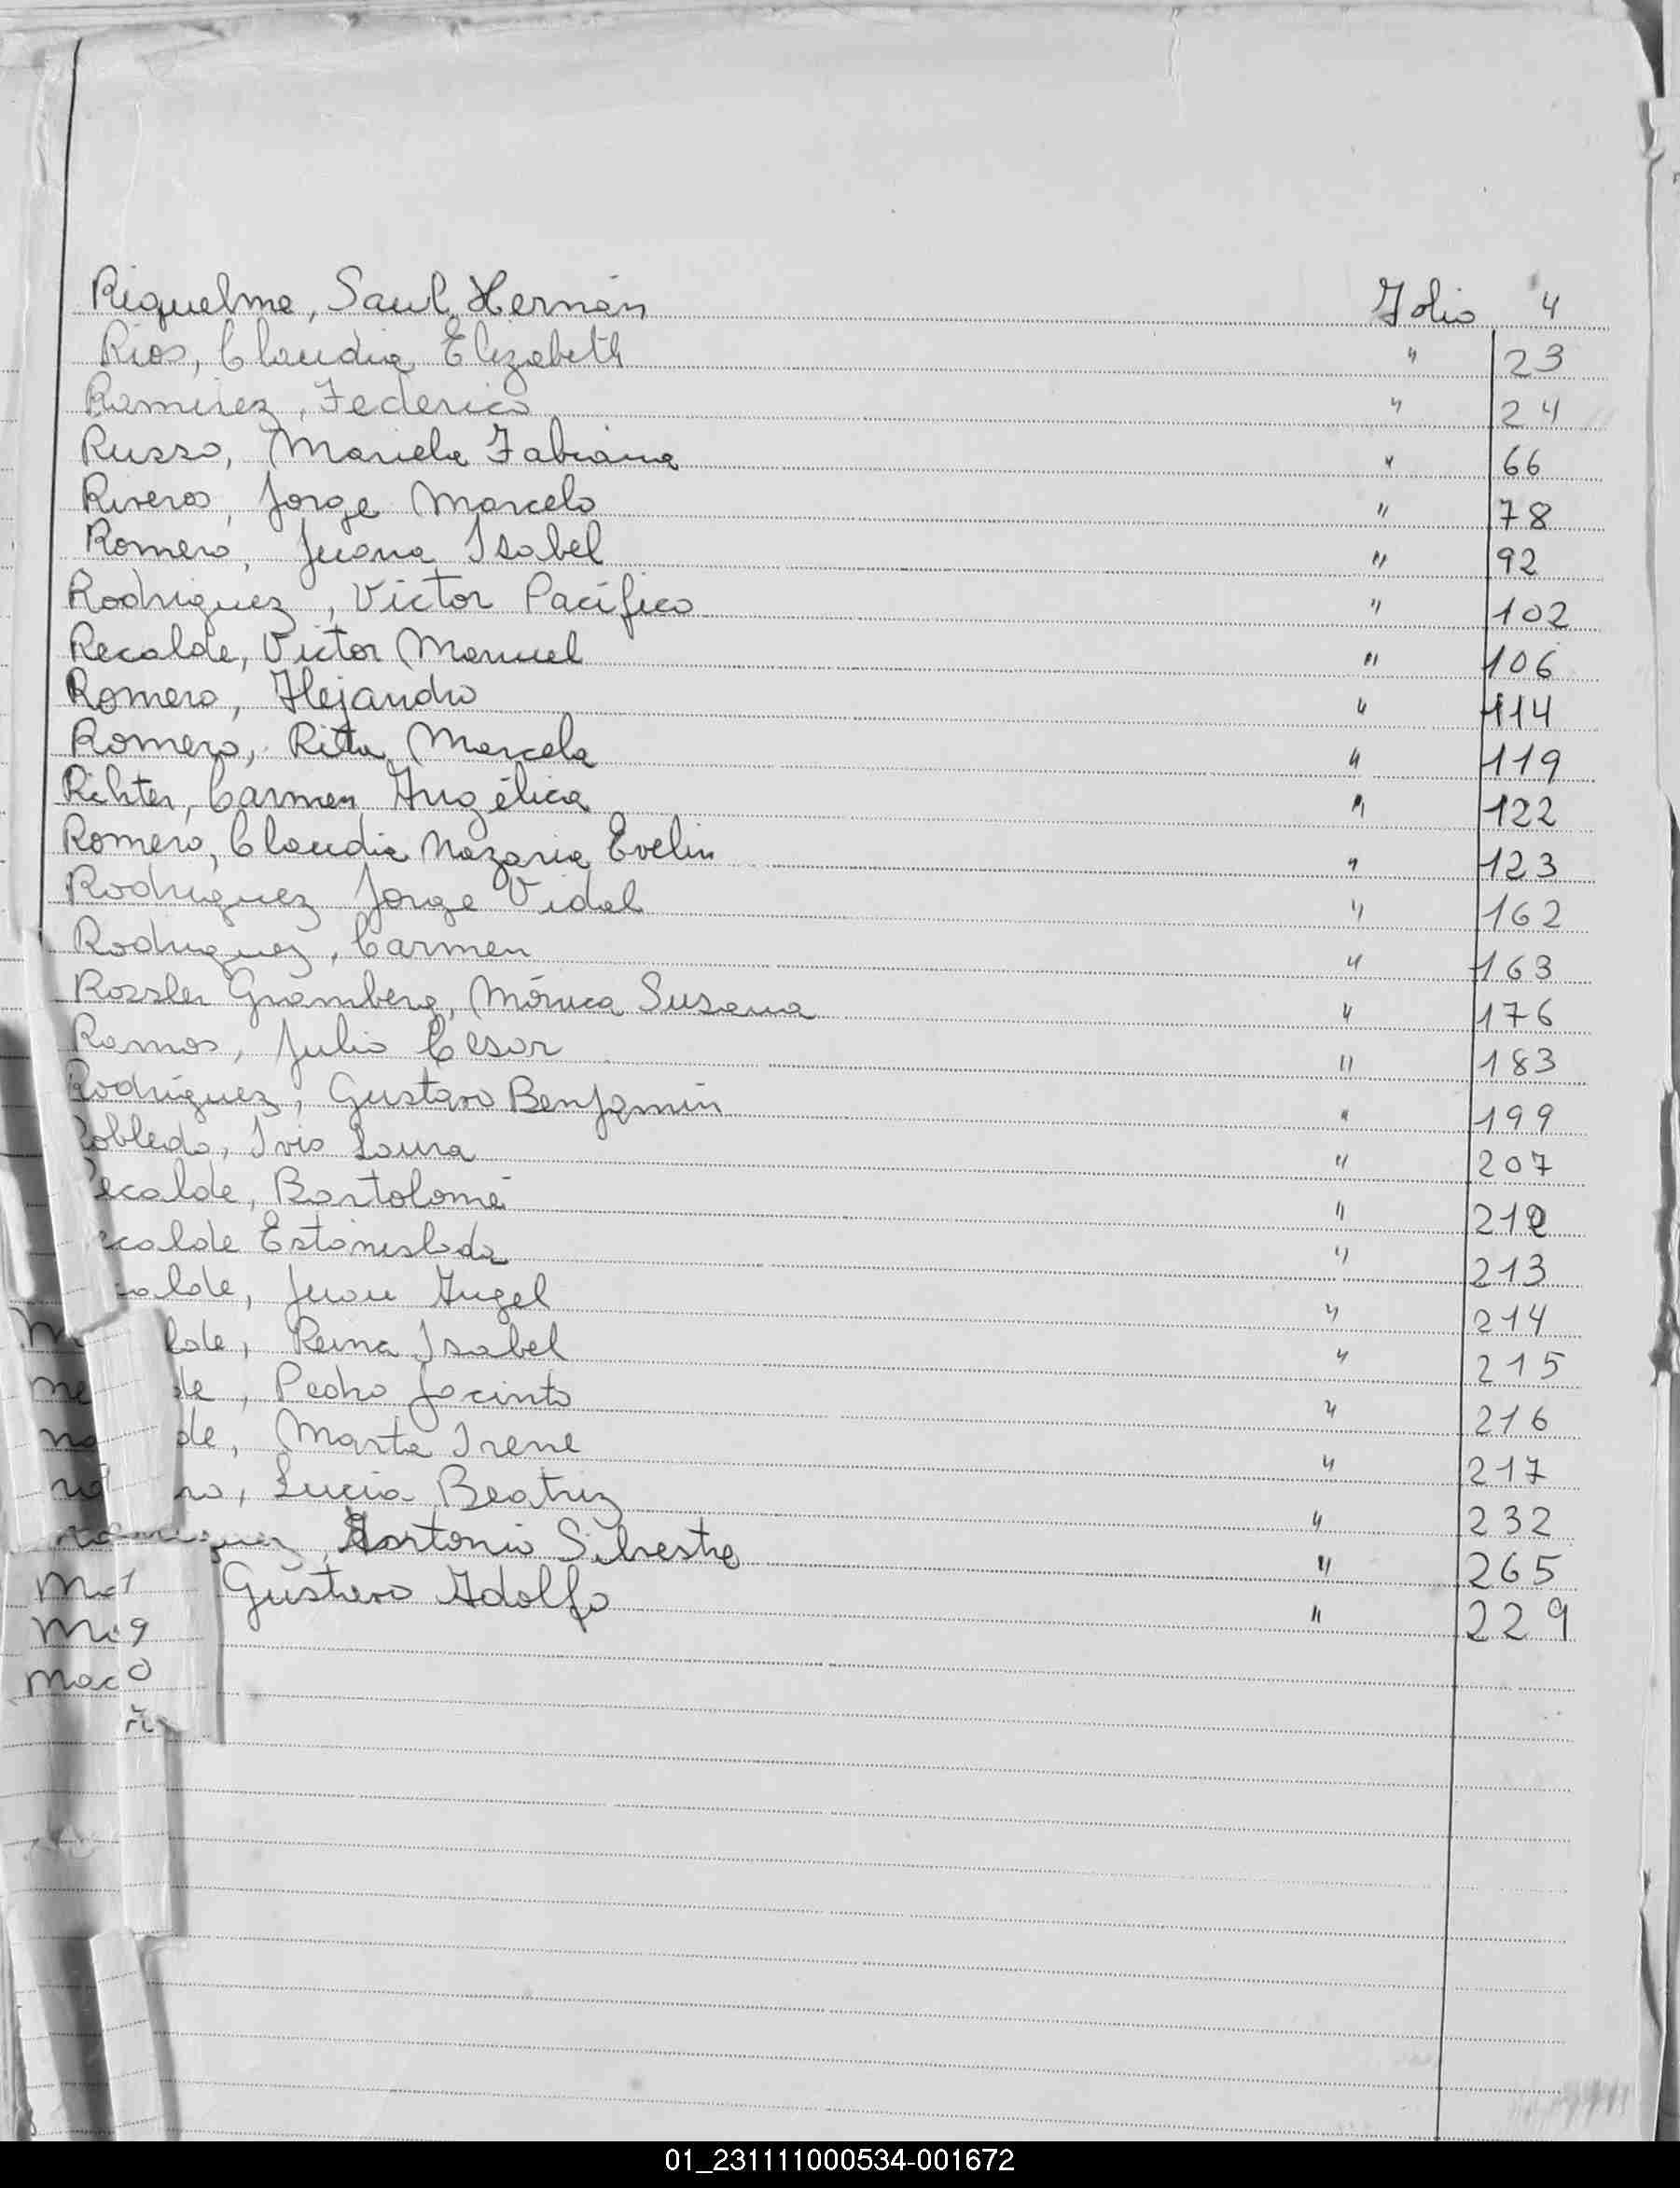 Riquelme, Saul Hernán Folio 4
Rios, Claudia Elizabeth " 23
Ramirez, Federico " 24
Russo, Mariela Fabiana " 66
Riveros, Jorge Marcelo " 78
Romero, Juana Isabel " 92
Rodriguez, Victor Pacífico " 102
Recalde, Victor Manuel " 106
Romero, Alejandro " 114
Romero, Rita Marcela " 119
Richter, Carmen Angélica " 122
Romero, Claudia Nazaria Evelin " 123
Rodriguez Jorge Vidal " 162
Rodriguez, Carmen " 163
Rossler Gramberg, Mónica Susana " 176
Ramos, Julio Cesar " 183
Rodríguez, Gustavo Benjamín " 199
Robledo, Ivis Laura " 207
ecalde, Bartolomé " 212
ecalde Estanislada " 213
calde, Juan Angel " 214
lde, Reina Isabel " 215
de, Pedro Jacinto " 216
de, Marta Irene " 217
ro, Lucia Beatriz " 232
guez, Antonio Silvestre " 265
Gustavo Adolfo " 229
01_231111000534-001672